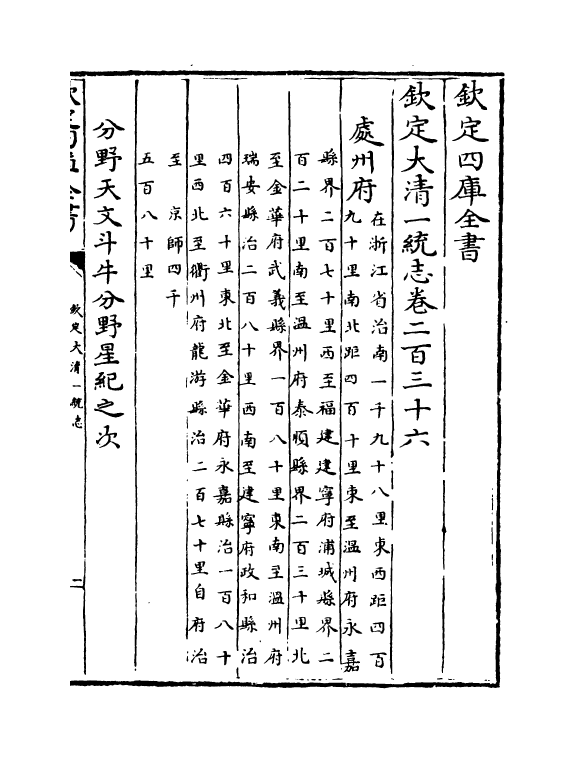 欽定四庫全書
欽定大清一統志卷二百三十六
處州府
在浙江省治南一千九十八里東西距四百
九十里南北距四百十里東至温州府永嘉
縣界二百七十里西至福建建寧府浦城縣界二
百二十里南至温州府泰順縣界二百三十里北
至金華府武義縣界一百八十里東南至温州府
瑞安縣治二百八十里西南至建寧府政和縣治
四百六十里東北至金華府永嘉縣治一百八十
里西北至衢州府龍游縣治二百七十里自府治
至 京師四千
五百八十里
分野天文斗牛分野星紀之次
欽定大清一統志
二